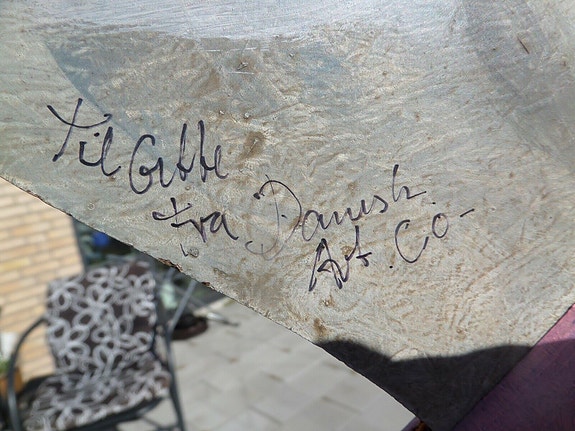 Til Gitte
fra Danish
Art. Co-